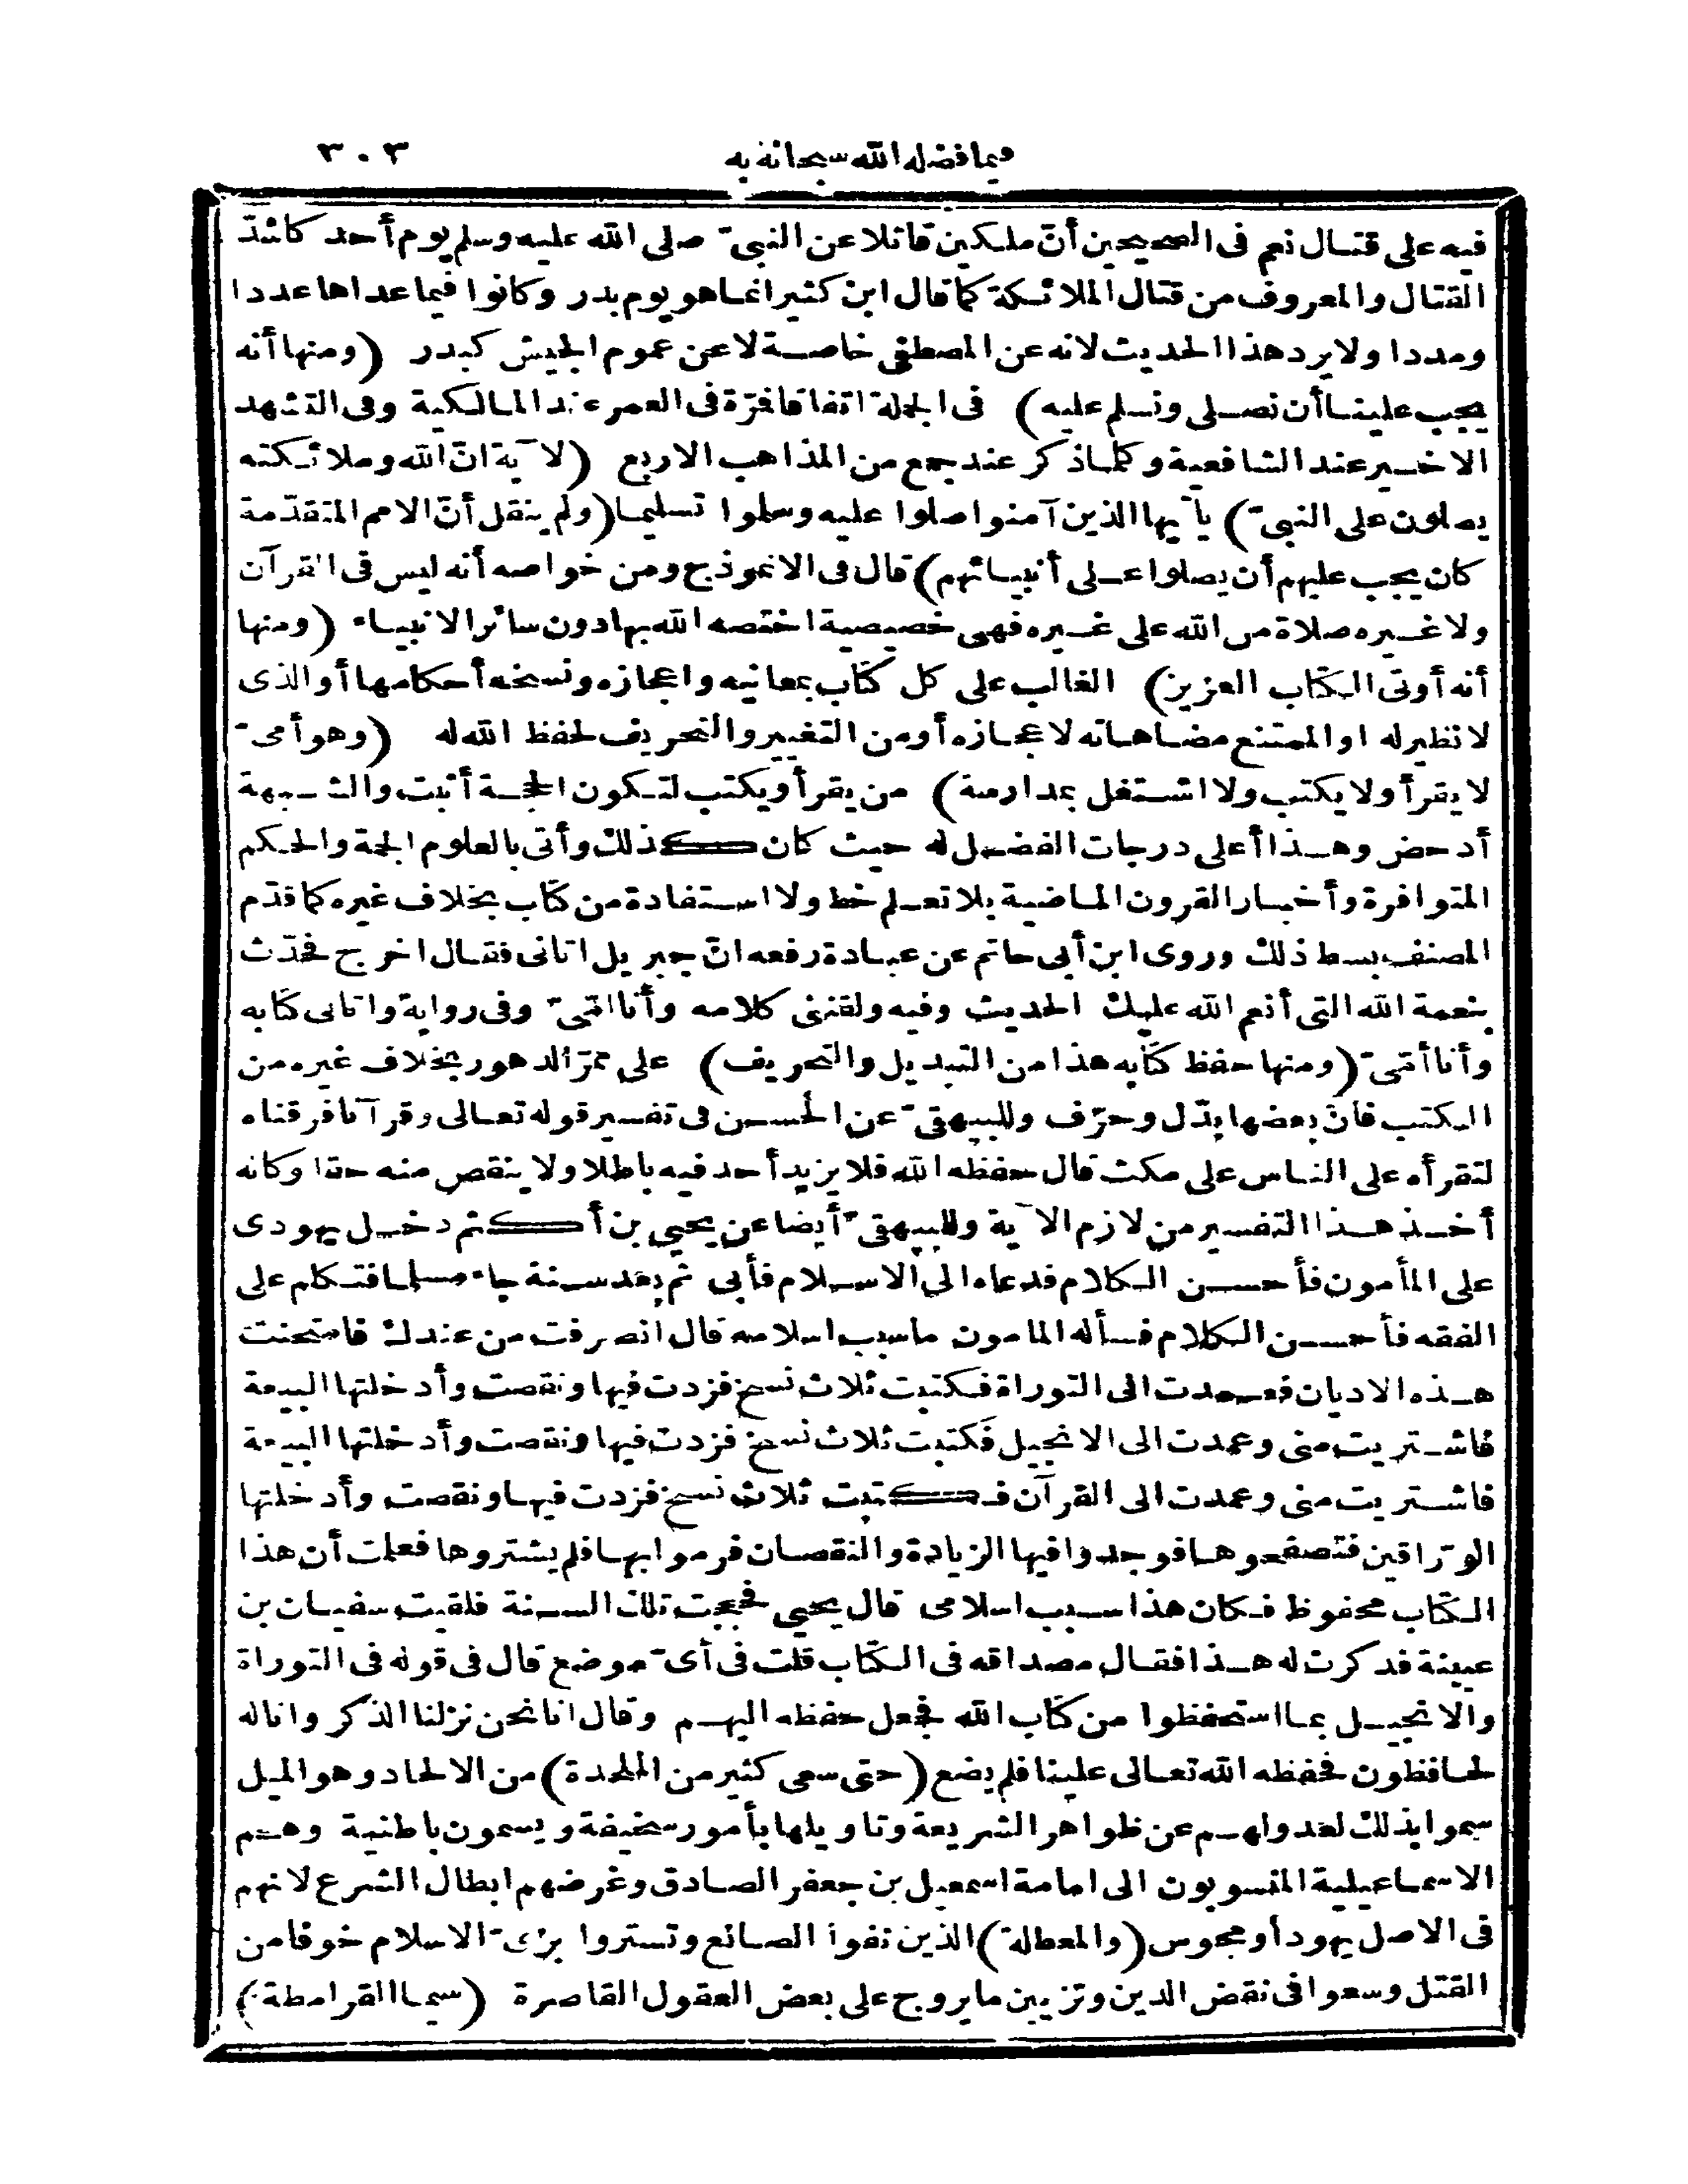 فيما فضله الله سبحانه به ٣٠٣
فيه على قتال نعم فى الصحيحين أنّ ملكين قاتلا عن النبىّ صلى الله عليه وسلم يوم أحد كاشدّ
القتال والمعروف من قتال الملائكة كما قال ابن كثير انما هو يوم بدر وكانوا فيما عداها عددا
ومددا ولا يرد هذا الحديث لانه عن المصطفى خاصة لا عن عموم الجيش كبدر (ومنها أنه
يجب علينا أن نصلى ونسلم عليه) فى الجملة اتفاقا فمرّة فى العمر عند المالكية وفى التشهد
الاخير عند الشافعية وكلما ذكر عند جمع من المذاهب الاربع (لآية انّ الله وملائكته
يصلون على النبىّ) يا أيها الذين آمنوا صلوا عليه وسلموا تسليما (ولم ينقل أنّ الامم المتقدّمة
كان يجب عليهم أن يصلوا على أنبيائهم) قال فى الانموذج ومن خواصه أنه ليس فى القرآن
ولا غيره صلاة من الله على غيره فهى خصيصية اختصه الله بها دون سائر الانبياء (ومنها
أنه أوتى الكتاب العزيز) الغالب على كل كتاب بمعانيه واعجازه ونسخه أحكامها أو الذى
لا نظير له او الممتنع مضاهاته لاعجازه أو من التغيير والتحريف لحفظ الله له (وهو أمىّ
لا يقرأ ولا يكتب ولا اشتغل بمدارسة) من يقرأ ويكتب لتكون الحجة أثبت والشبهة
أدحض وهذا أعلى درجات الفضل له حيث كان كذلك وأتى بالعلوم الجمة والحكم
المتوافرة وأخبار القرون الماضية بلا تعلم خط ولا استفادة من كتاب بخلاف غيره كما قدّم
المصنف بسط ذلك وروى ابن أبى حاتم عن عبادة رفعه انّ جبريل اتانى فقال اخرج فحدّث
بنعمة الله التى أنعم الله عليك الحديث وفيه ولقننى كلامه وأنا امّىّ وفى رواية واتانى كتابه
وأنا أمّىّ (ومنها حفظ كتابه هذا من التبديل والتحريف) على ممرّ الدهور بخلاف غيره من
الكتب فانّ بعضها بدّل وحرّف وللبيهقىّ عن الحسن فى تفسير قوله تعالى وقرآنا فرقناه
لتقرأه على الناس على مكث قال حفظه الله فلا يزيد أحد فيه باطلا ولا ينقص منه حقا وكانه
أخذ هذا التفسير من لازم الآية وللبيهقىّ أيضا عن يحيى بن أكثم دخل يهودى
على المأمون فأحسن الكلام فدعاه الى الاسلام فأبى ثم بعد سنة جاء مسلما فتكلم على
الفقه فأحسن الكلام فسأله المامون ما سبب اسلامه قال انصرفت من عندك فامتحنت
هذه الاديان فعمدت الى التوراة فكتبت ثلاث نسخ فزدت فيها ونقصت وأدخلتها البيعة
فاشتريت منى وعمدت الى الانجيل فكتبت ثلاث نسخ فزدت فيها ونقصت وأدخلتها البيعة
فاشتريت منى وعمدت الى القرآن فكتبت ثلاث نسخ فزدت فيها ونقصت وأدخلتها
الورّاقين فتصفحوها فوجدوا فيها الزيادة والنقصان فرموا بها فلم يشتروها فعلمت أن هذا
الكتاب محفوظ فكان هذا سبب اسلامى قال يحيى فحججت تلك السنة فلقيت سفيان بن
عيينة فذكرت له هذا فقال مصداقه فى الكتاب قلت فى أىّ موضع قال فى قوله فى التوراة
والانجيل بما استحفظوا من كتاب الله فجعل حفظه اليهم وقال انا نحن نزلنا الذكر وانا له
لحافظون فحفظه الله تعالى علينا فلم يضع (حتى سعى كثير من الملحدة) من الالحاد وهو الميل
سموا بذلك لعدولهم عن ظواهر الشريعة وتاويلها بأمور سخيفة ويسمون باطنية وهم
الاسماعيلية المنسوبون الى امامة اسمعيل بن جعفر الصادق وغرضهم ابطال الشرع لانهم
فى الاصل يهود أو مجوس (والمعطلة) الذين نفوا الصانع وتستروا بزىّ الاسلام خوفا من
القتل وسعوا فى نقض الدين وتزيين ما يروج على بعض العقول القاصرة (سيما القرامطة)